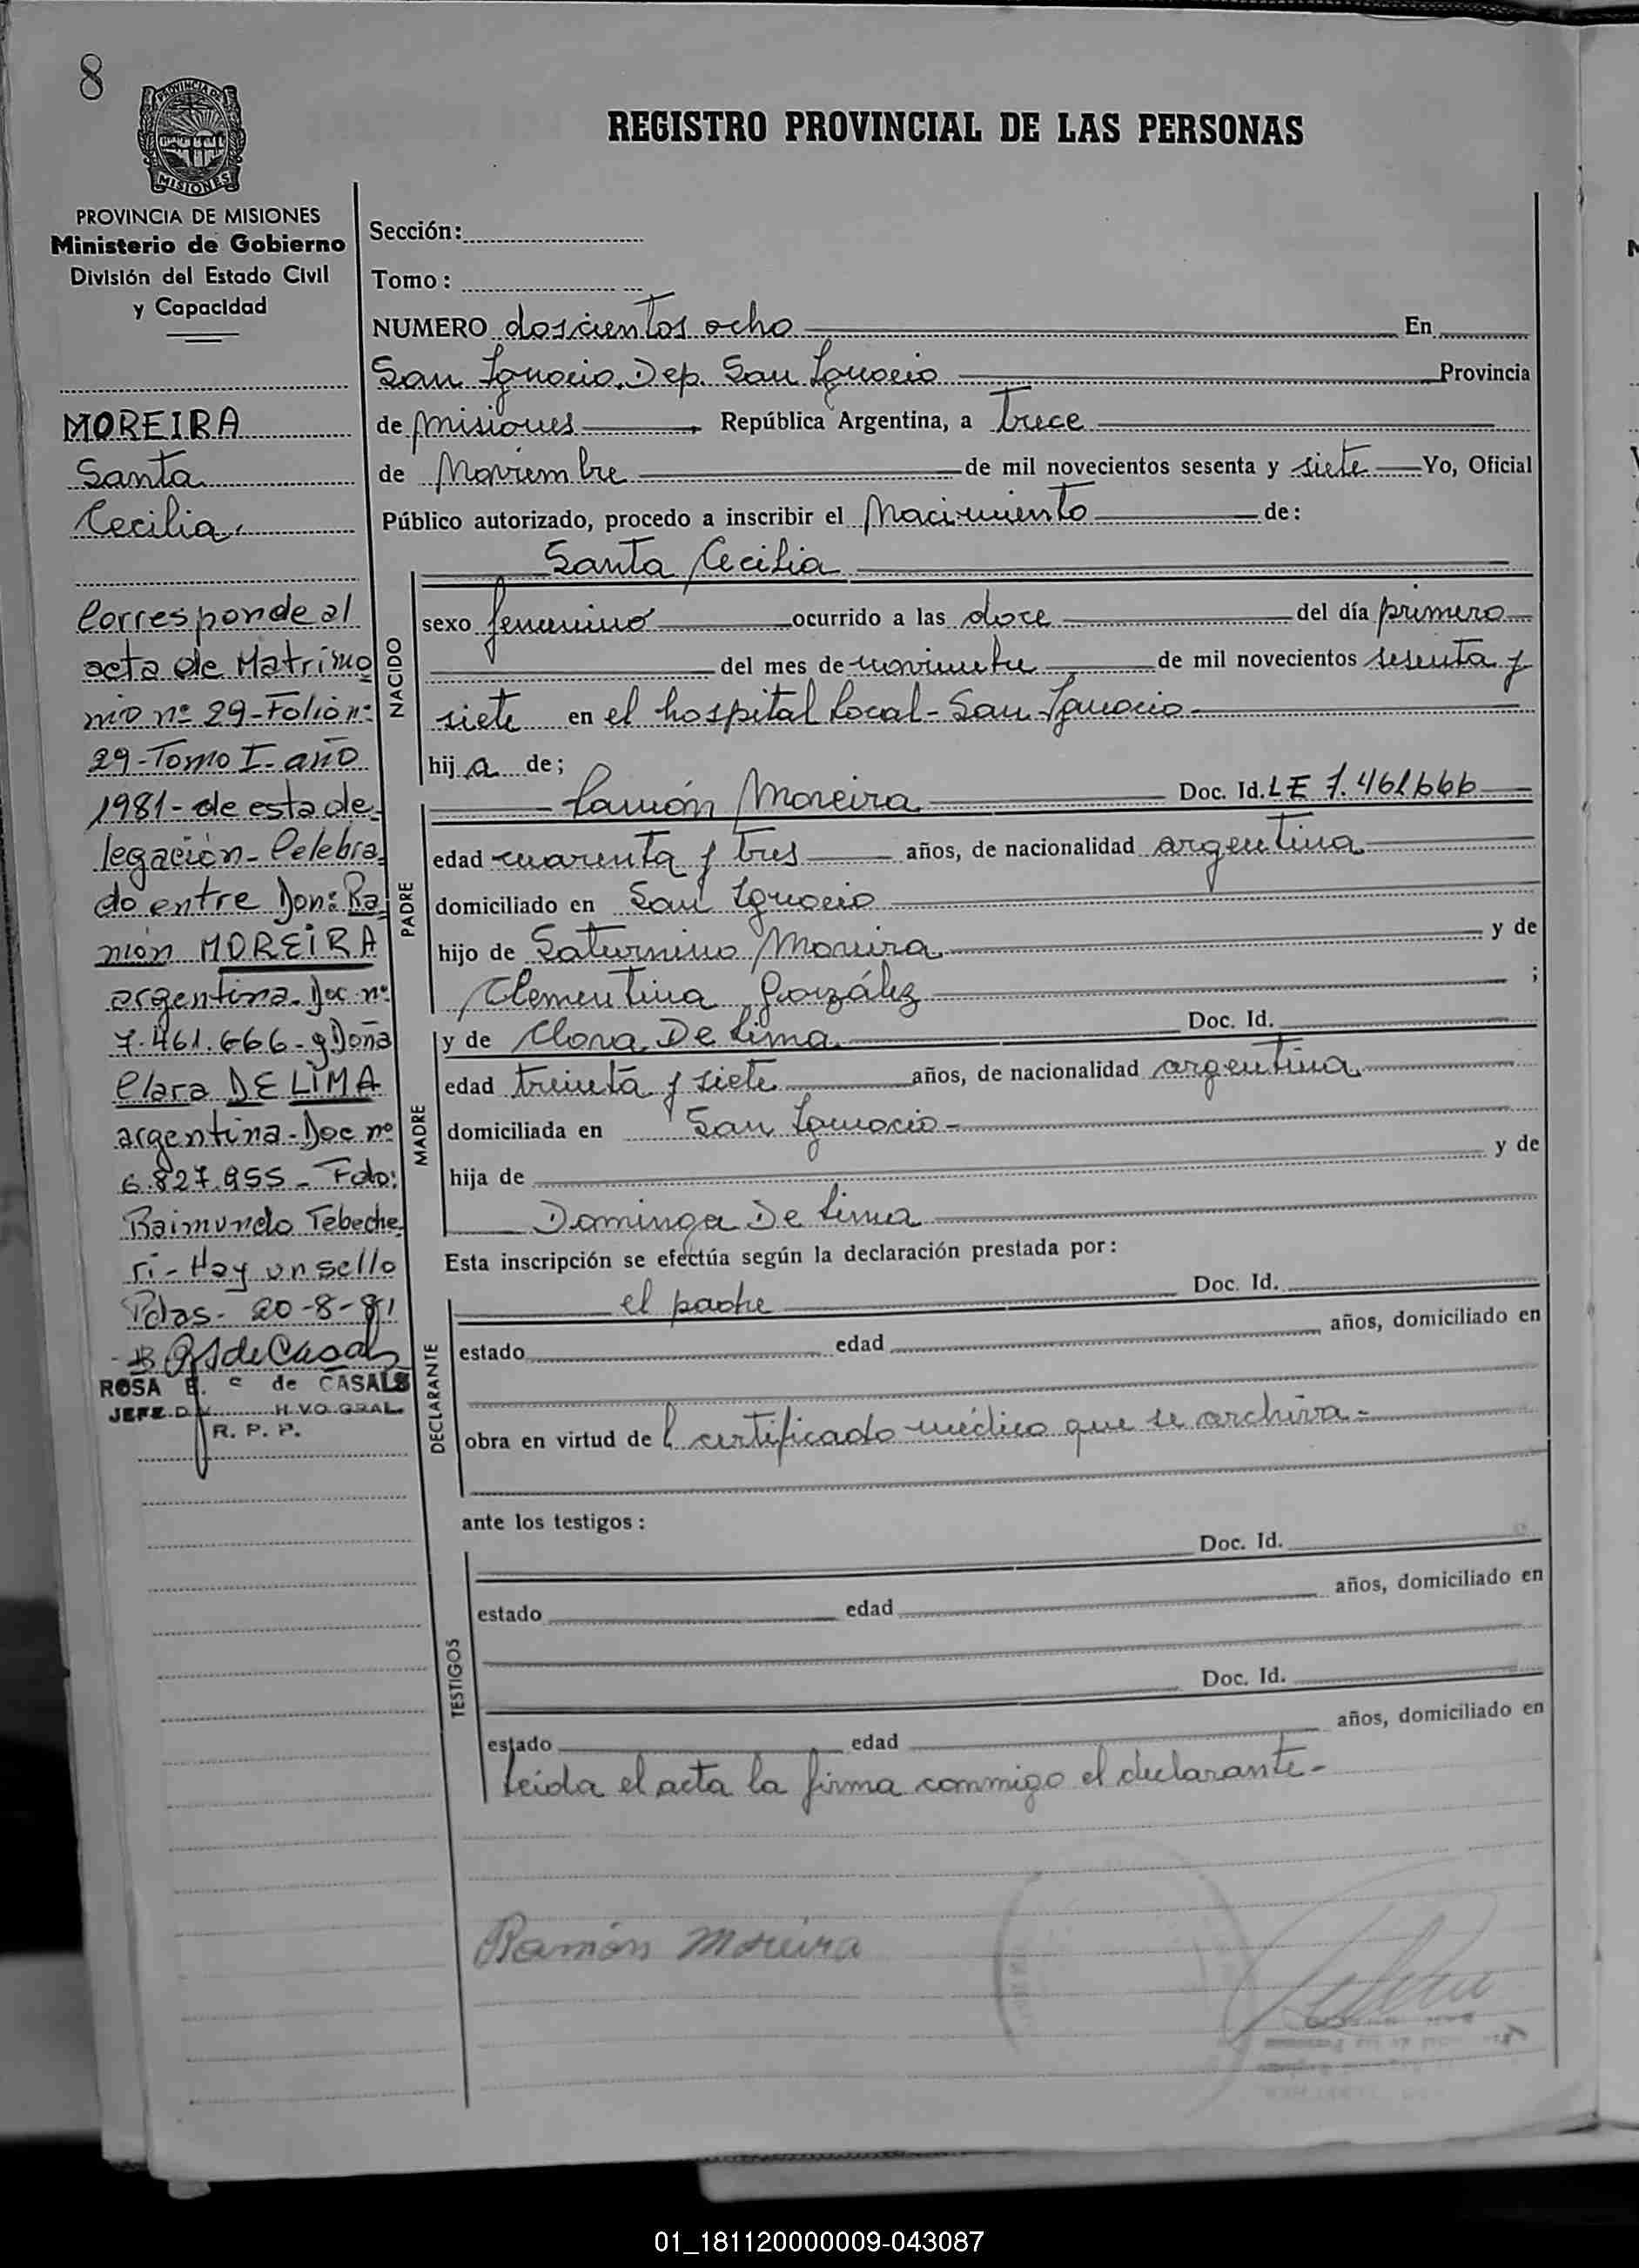 8
PROVINCIA DE
MISIONES
REGISTRO PROVINCIAL DE LAS PERSONAS
PROVINCIA DE MISIONES
Ministerio de Gobierno
División del Estado Civil
y Capacidad
MOREIRA
Santa
Cecilia.
Corresponde al
acta de Matrimo
nio nº 29-Folio nº
29-Tomo I-año
1981-de esta de
legación-Celebra
do entre Don: Ra
món MOREIRA
argentina-Doc nº
7.461.666-y Doña
Clara DE LIMA
argentina-Doc nº
6.827.955-Fdo:
Raimundo Tebeche
ri-Hay un sello
Pdas-20-8-81
ROSA E. de CASALS
R. P. P.
Sección:
Tomo:
NUMERO doscientos ocho En
San Ignacio. Dep. San Ignacio Provincia
de Misiones República Argentina, a Trece
de Noviembre de mil novecientos sesenta y siete Yo, Oficial
Público autorizado, procedo a inscribir el Nacimiento de:
Santa Cecilia
NACIDO
sexo femenino ocurrido a las doce del día primero
del mes de noviembre de mil novecientos sesenta y
siete en el hospital local-San Ignacio-
hij a de;
PADRE
Ramón Moreira Doc. Id. LE 7.461666
edad cuarenta y tres años, de nacionalidad argentina
domiciliado en San Ignacio
hijo de Saturnino Moreira y de
Clementina González ;
MADRE
y de Clara De Lima Doc. Id.
edad treinta y siete años, de nacionalidad argentina
domiciliada en San Ignacio-
hija de y de
Dominga De Lima
Esta inscripción se efectúa según la declaración prestada por:
DECLARANTE
el padre Doc. Id.
estado edad años, domiciliado en
obra en virtud de l certificado médico que se archiva-
ante los testigos:
TESTIGOS
Doc. Id.
estado edad años, domiciliado en
Doc. Id.
estado edad años, domiciliado en
Leida el acta la firma conmigo el declarante-
Ramón Moreira
01_181120000009-043087